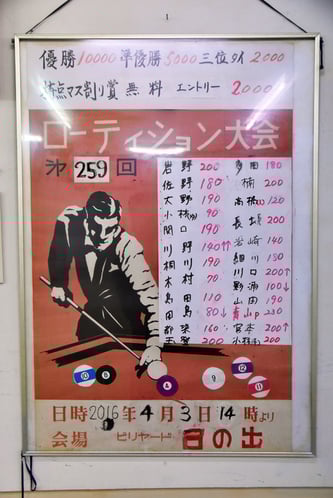 優勝 10000 準優勝 5000 三位タイ 2000
持点マス割り賞 無料 エントリー 2000
ローティション大会
第 259 回
岩野 200
佐野 180
大野 190
小林(カ) 90
関口 190
川野 140↑
桐川 190
木村 70
島田 110
田島 80↓
都築 160
玉置 200
多田 180
楠 200
高橋 120
長堀 200
岩崎 140
細川 180
川口 200↑
野浦 100↓
山内 190
青山P 230
宮本 200↑
200
10 8 4 9 12 11
日時 2016年 4月 3日 14時より
会場 ビリヤード 日の出